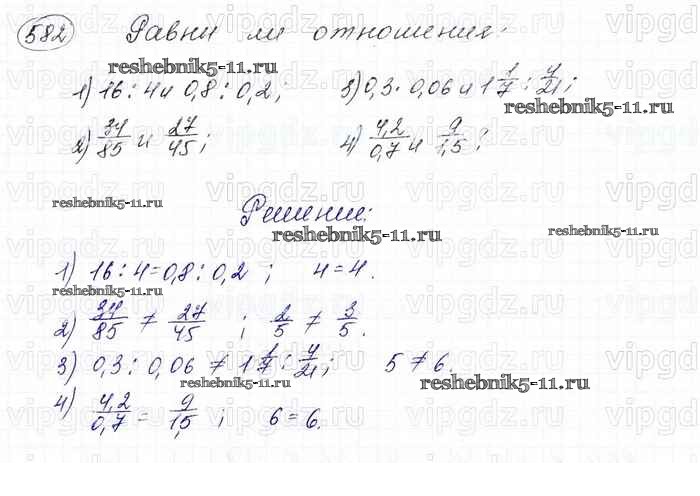 582 Равны ли отношения:
1) 16 : 4 и 0,8 : 0,2; 3) 0,3 : 0,06 и 1 1/7 : 4/21;
2) 34/85 и 27/45; 4) 4,2/0,7 и 9/1,5;
Решение:
1) 16 : 4 = 0,8 : 0,2 ; 4 = 4.
2) 34/85 ≠ 27/45 ; 2/5 ≠ 3/5.
3) 0,3 : 0,06 ≠ 1 1/7 : 4/21; 5 ≠ 6.
4) 4,2/0,7 = 9/1,5 ; 6 = 6.
reshebnik5-11.ru
reshebnik5-11.ru
reshebnik5-11.ru
reshebnik5-11.ru
reshebnik5-11.ru
reshebnik5-11.ru
reshebnik5-11.ru
reshebnik5-11.ru
reshebnik5-11.ru
vipgdz.ru